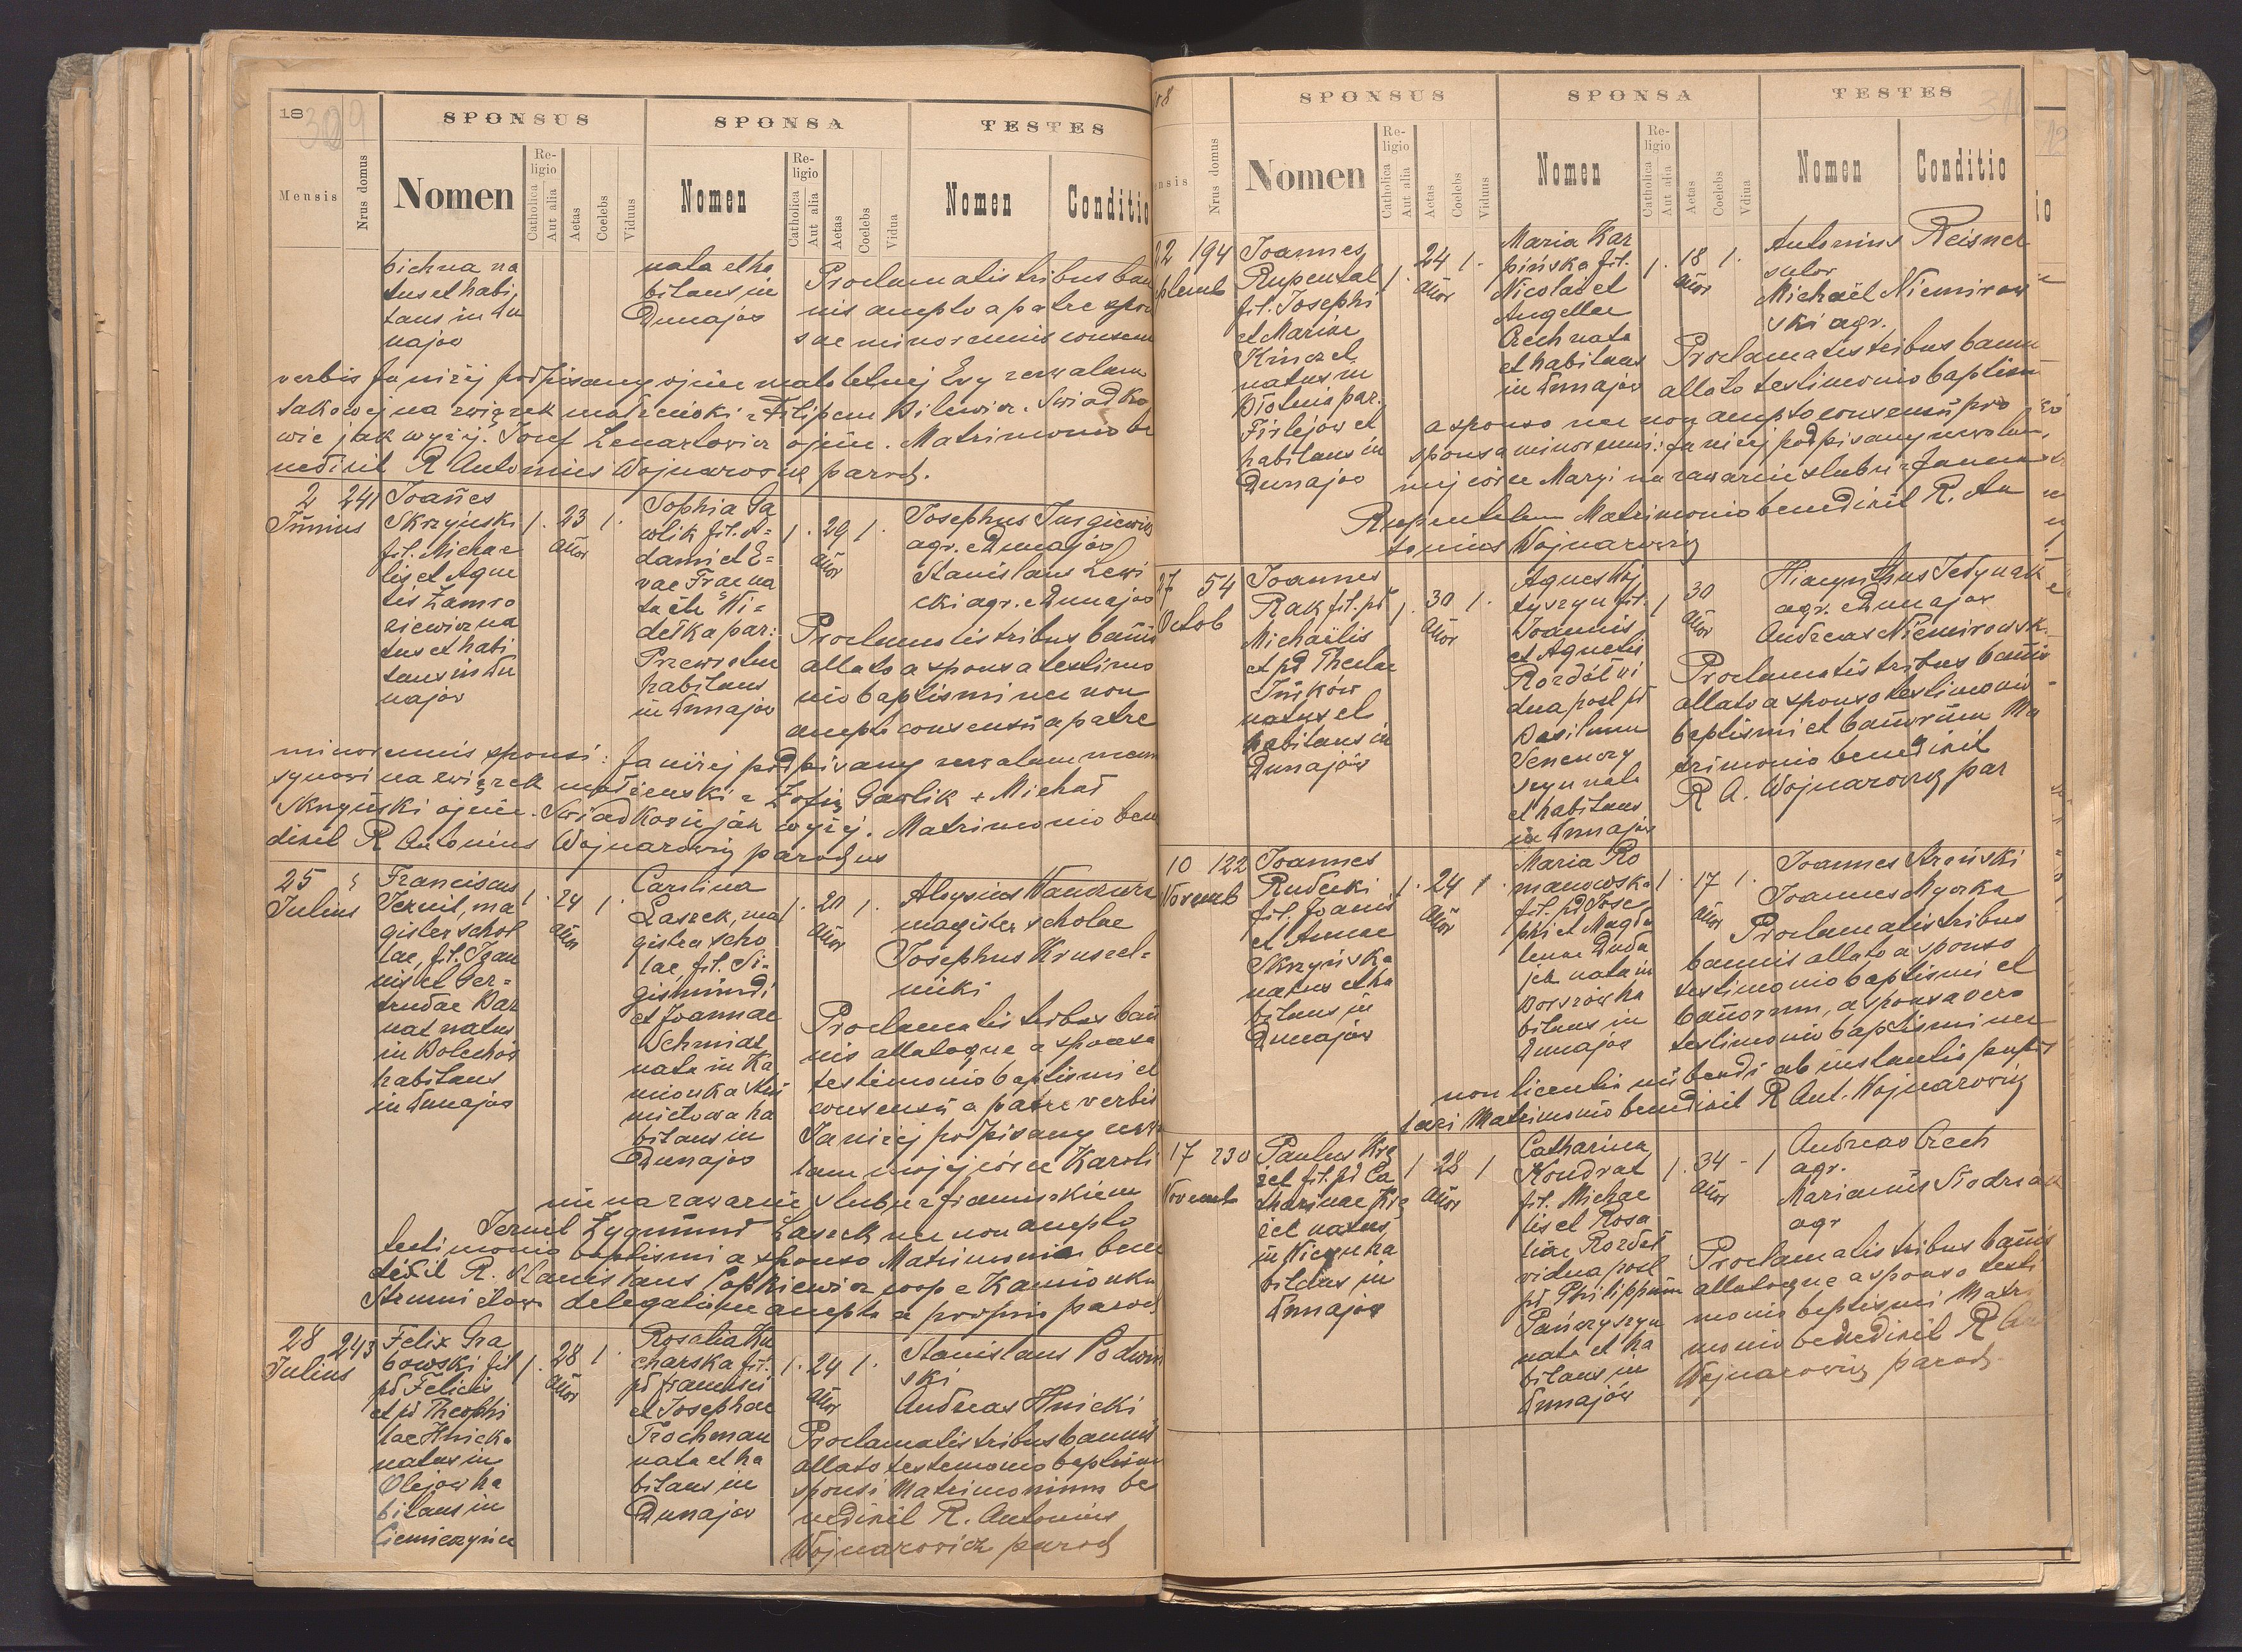 18
309
SPONSUS
SPONSA
TESTES
Mensis
Nrus domus
Nomen
Religio
Catholica
Aut alia
Aetas
Coelebs
Viduus
Nomen
Religio
Catholica
Aut alia
Aetas
Coelebs
Vidua
Nomen
Conditio
bichna na
tus et habi
tans in Du
najow
nata et ha
bitans in
Dunajow
Proclamatis tribus ban
nis accepto a patre spon
sae minorennis consensu
verbis Ja niżej podpisany ojciec małoletniej Ewy zezwalam
takowej na związek małżeński z Filipem Bilewicz. Świadko
wie jak wyżej. Josef Lenartowicz ojciec. Matrimonio be
nedixit R Antonius Wojnarowicz paroch.
2 241
Junius
Joañes
Skrzyński
fil. Michae
lis et Agne
tis Zamro
ziewicz na
tus et habi
tans in Du
najow
1. 23 1.
añor
Sophia Ga
wlik fil. A=
dami et E=
vae Frac na
ta in Wi=
dełka par:
Przewrotne
habitans
in Dunajow
1. 29 1.
añor
Josephus Jurgiewicz
agr. e Dunajow
Stanislaus Lewi
cki agr. e Dunajow
Proclamatis tribus bañis
allato a sponsa testimo
nio baptismi nec non
accepto consensu a patre
minorennis sponsi: Ja niżej podpisany zezwalam mem
synowi na związek małżeński z Zofią Gawlik + Michał
Skrzyński ojciec. Świadkowie jak wyżej. Matrimonio bene
dixit R Antonius Wojnarowicz parochus
25
Julius
Franciscus
Jernil, ma
gister schol
lae, fil. Joan
nis et Ger=
trudae Bar
nat natus
in Bolechów
habitans
in Dunajow
1. 24 1.
añor
Carolina
Laszek, ma
gister scho
lae, fil. Si=
gismundi
et Joannae
Schmidt
nata in Ka
mionka Stru
miłowa ha
bitans in
Dunajow
1. 20 1.
añor
Aloysius Wandzura
magister scholae
Josephus Krusel=
nicki
Proclamatis tribus bañ
nis allatoque a sponsa
testimonio baptismi et
consensu a patre verbis
Ja niżej podpisany zezwa
lam mojej córce Karoli
nie na zawarcie ślubu z Franciszkiem
Jernil Zygmund Laszek nec non accepto
testimonio baptismi a sponso Matrimonio bene
dixit R. Stanislaus Popkiewicz coop e Kamionka
Strumiłowa delegatione accepta a proprio parocho
28 243
Julius
Felix Gra
bowski fil
pd Felicis
et pd Theophi
lae Hnicka
natus in
Olejow ha
bitans in
Ciemierzynce
1. 28 1.
añor
Rosalia Ku
charska fil.
pd Francisci
et Josephae
Trochman
nata et ha
bitans in
Dunajow
1. 24 1.
añor
Stanislaus Podwin
ski
Andreas Hnicki
Proclamatis tribus bannis
allato testimonio baptismi
sponsi Matrimonium be
nedixit R. Antonius
Wojnarowicz paroch
SPONSUS
SPONSA
TESTES
Nrus domus
Nomen
Religio
Catholica
Aut alia
Aetas
Coelebs
Vidus
Nomen
Religio
Catholica
Aut alia
Aetas
Coelebs
Vdiua
Nomen
Conditio
22 194
Joannes
Rupental
fil. Josephi
et Mariae
Kinczel
natus in
Błotnia par.
Firlejow et
habitans in
Dunajow
1. 24 1.
añor
Maria Kar
pińska fil.
Nicolai et
Angellae
Czech nata
et habitans
in Dunajow
1. 18 1.
añor
Antonius Reisner
sutor
Michaël Niemirow
ski agr.
Proclamatis tribus bannis
allato testimonio baptismi
a sponso nec non accepto consensu pro
sponsa minorenni: Ja niżej podpisany zezwalam
mej córce Maryi na zawarcie ślubu z Janem
Rupentalem Matrimonio benedixit R. An
tonius Wojnarowicz
27 54
Octob
Joannes
Rak fil. pd
Michaëlis
et pd Theclae
Juśków
natus et
habitans in
Dunajów
1. 30 1.
añor
Agnes Woj
tyszyn fil.
Joannis
et Agnetis
Rozdół vi
dua post pd
Basilium
Senenczy
szyn nata
et habitans
in Dunajow
1 30
añor
Hiacynthus Jedynak
agr. e Dunajow
Andreas Niemirowsk.
Proclamatis tribus bañis
allato a sponso testimonio
baptismi et bañorum Ma
trimonio benedixit
R A. Wojnarowicz par
10 122
Novemb
Joannes
Rudecki
fil. Joanis
et Annae
Skrzyńska
natus et ha
bitans in
Dunajów
1. 24 1.
añor
Maria Ro
manowska
fil. pd Jose
phi et Magda
lenae Duda
jek nata in
Borszów ha
bitans in
Dunajow
1. 17 1.
añor
Joannes Arcński
Joannes Myczka
Proclamatis tribus
bannis allato a sponso
testimonio baptismi et
bañorum, a sponsa vero
testimonio baptismi nec
non licentia nubendi ab instantia pupil
lari Matrimonio benedixit R Ant. Wojnarowicz
17 230
Novemb
Paulus Krę
żel fil. pd Ca
tharinae Krę
żel natus
ha
bitans in
Dunajow
1 28 1
añor
Catharina
Kondrat
fil. Michae
lis et Rosa
liae Rozdół
vidua post
pd Philippum
Pańczyszyn
nata et ha
bitans in
Dunajów
1. 34 - 1
añor
Andreas Czech
agr.
Marianus Siodrak
agr
Proclamatis tribus bañis
allatoque a sponso testi
monio baptismi Matri
monio benedixit R An
Wojnarowicz paroch.